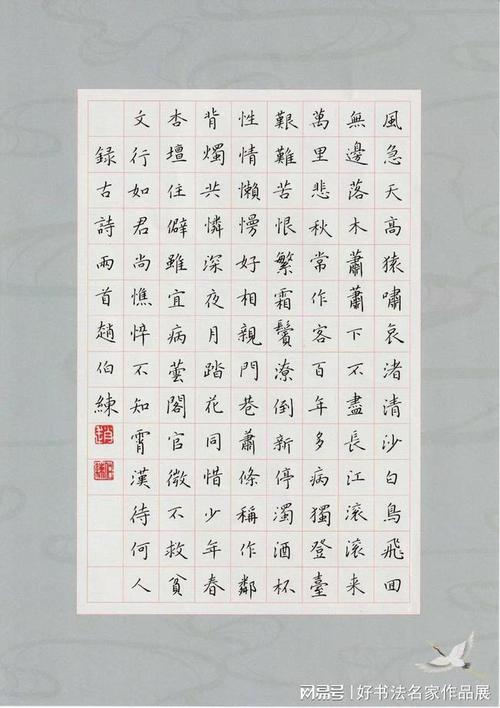 風急天高猿嘯哀渚清沙白鳥飛回
無邊落木蕭蕭下不盡長江滾滾來
萬里悲秋常作客百年多病獨登臺
艱難苦恨繁霜鬢潦倒新停濁酒杯
性情懶慢好相親門巷蕭條稱作鄰
背燭共憐深夜月踏花同惜少年春
杏壇住僻雖宜病蕓閣官微不救貧
文行如君尚憔悴不知霄漢待何人
録古詩兩首趙伯練
网易号 | 好书法名家作品展